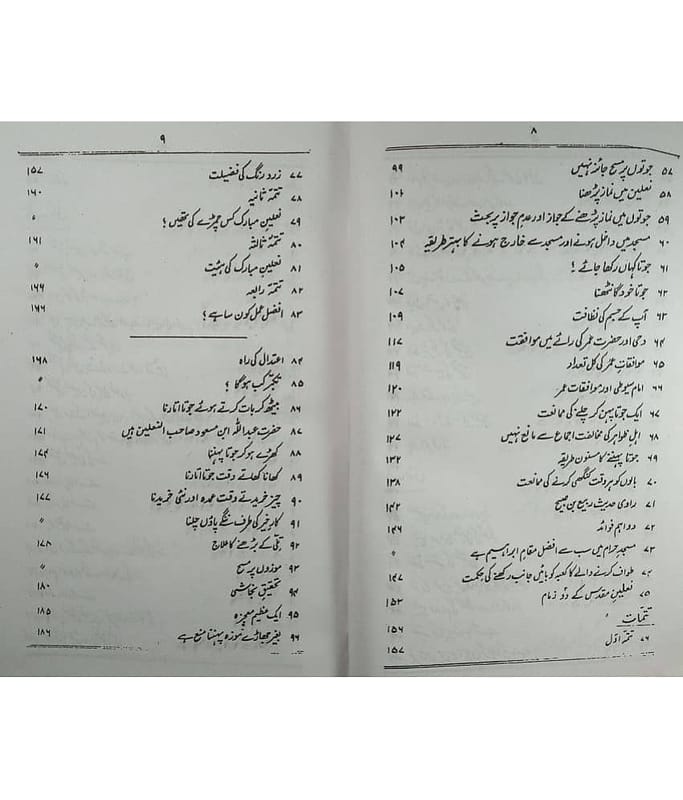 ۸
۵۷ جوتوں پر مسح جائز نہیں ۹۹
۵۸ نعلین میں نماز پڑھنا ۱۰۱
۵۹ جوتوں میں نماز پڑھنے کے جواز اور عدم جواز پر بحث ۱۰۳
۶۰ مسجد میں داخل ہونے اور مسجد سے خارج ہونے کا بہتر طریقہ ۱۰۴
۶۱ جوتا کہاں رکھا جائے ! ۱۰۵
۶۲ جوتا خود گانٹھنا ۱۰۷
۶۳ آپ کے جسم کی نظافت ۱۰۹
۶۴ وحی اور حضرت عمر کی رائے میں موافقت ۱۱۷
۶۵ موافقات عمر کی کل تعداد ۱۱۹
۶۶ امام سیوطی اور موافقات عمر ۱۲۰
۶۷ ایک جوتا پہن کر چلنے کی ممانعت ۱۲۲
۶۸ اہل ظواہر کی مخالفت اجماع سے مانع نہیں ۱۲۷
۶۹ جوتا پہننے کا مسنون طریقہ ۱۳۲
۷۰ بالوں کو ہر وقت کنگھی کرنے کی ممانعت ۱۳۸
۷۱ راوی حدیث ربیع بن صبیح ۱۴۲
۷۲ دو اہم فوائد ۱۴۶
۷۳ مسجد حرام میں سب سے افضل مقام ابراہیم ہے "
۷۴ طواف کرنے والے کا کعبہ کو بائیں جانب رکھنے کی حکمت ۱۴۷
۷۵ نعلین مقدس کے دو زمام ۱۵۳
تتمات ۱۵۶
۷۶ تتمہ اوّل ۱۵۷
۹
۷۷ زرد رنگ کی فضیلت ۱۵۷
۷۸ تتمہ ثانیہ ۱۶۰
۷۹ نعلین مبارک کس چمڑے کی تھیں ؟ "
۸۰ تتمہ ثالثہ ۱۶۱
۸۱ نعلین مبارک کی ہیئت "
۸۲ تتمہ رابعہ ۱۶۶
۸۳ افضل عمل کون سا ہے ؟ ۱۶۶
۸۴ اعتدال کی راہ ۱۶۸
۸۵ تکبر کب ہوگا ؟ "
۸۶ بیٹھ کر بات کرتے ہوئے جوتا اتارنا ۱۷۰
۸۷ حضرت عبداللہ ابن مسعود صاحب النعلین ہیں ۱۷۱
۸۸ کھڑے ہو کر جوتا پہننا ۱۷۴
۸۹ کھانا کھاتے وقت جوتا اتارنا ۱۷۶
۹۰ چیز خریدتے وقت عمدہ اور نئی خریدنا ۱۷۷
۹۱ کارِ خیر کی طرف ننگے پاؤں چلنا "
۹۲ تلّی کے بڑھنے کا علاج ۱۷۸
۹۳ موزوں پر مسح "
۹۴ تحقیق نجاشی ۱۸۰
۹۵ ایک عظیم معجزہ ۱۸۵
۹۶ بغیر جھاڑے موزہ پہننا منع ہے ۱۸۶